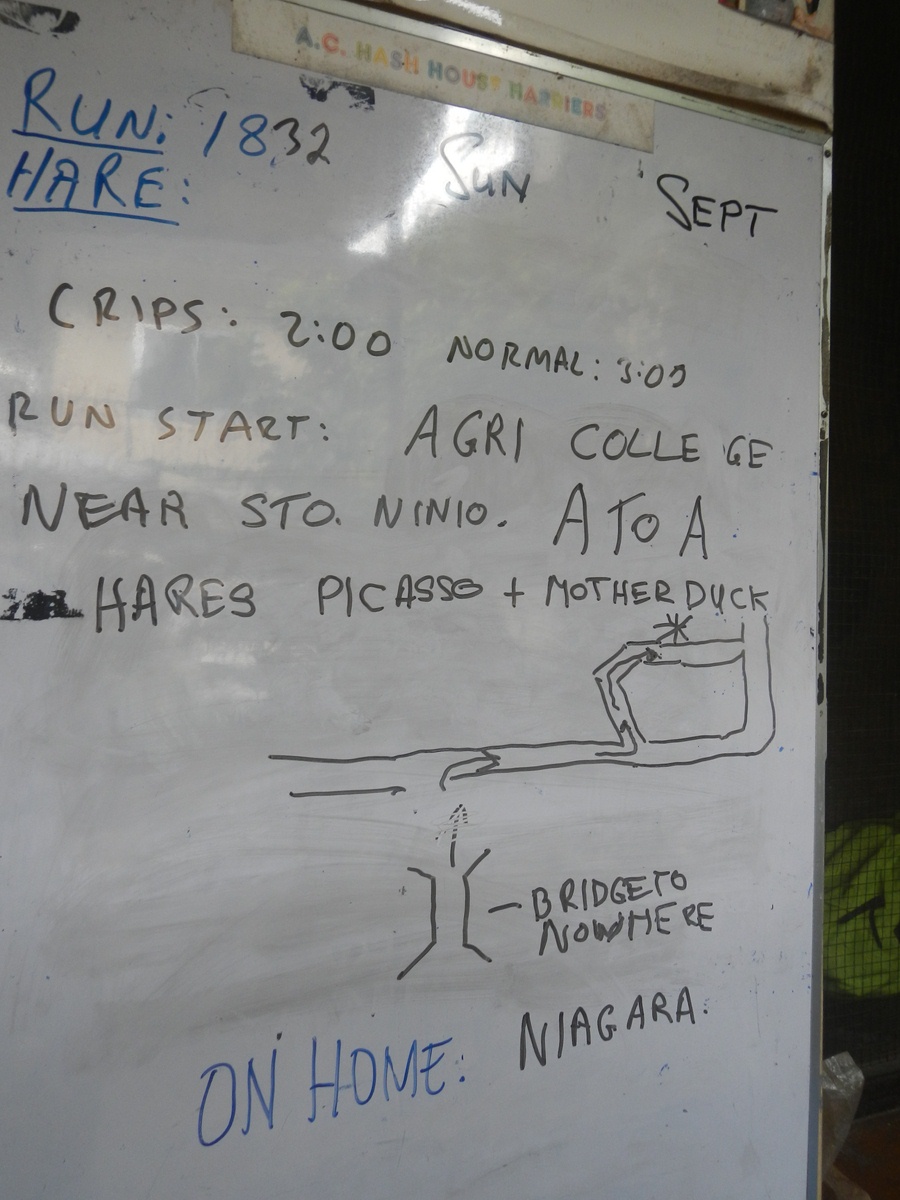 A.C. HASH HOUSE HARRIERS
RUN: 1832
HARE:
SUN SEPT
CRIPS: 2:00 NORMAL: 3:00
RUN START: AGRI COLLEGE
NEAR STO. NINIO. A TO A
HARES PICASSO + MOTHER DUCK
BRIDGE TO
NOWHERE
ON HOME: NIAGARA.